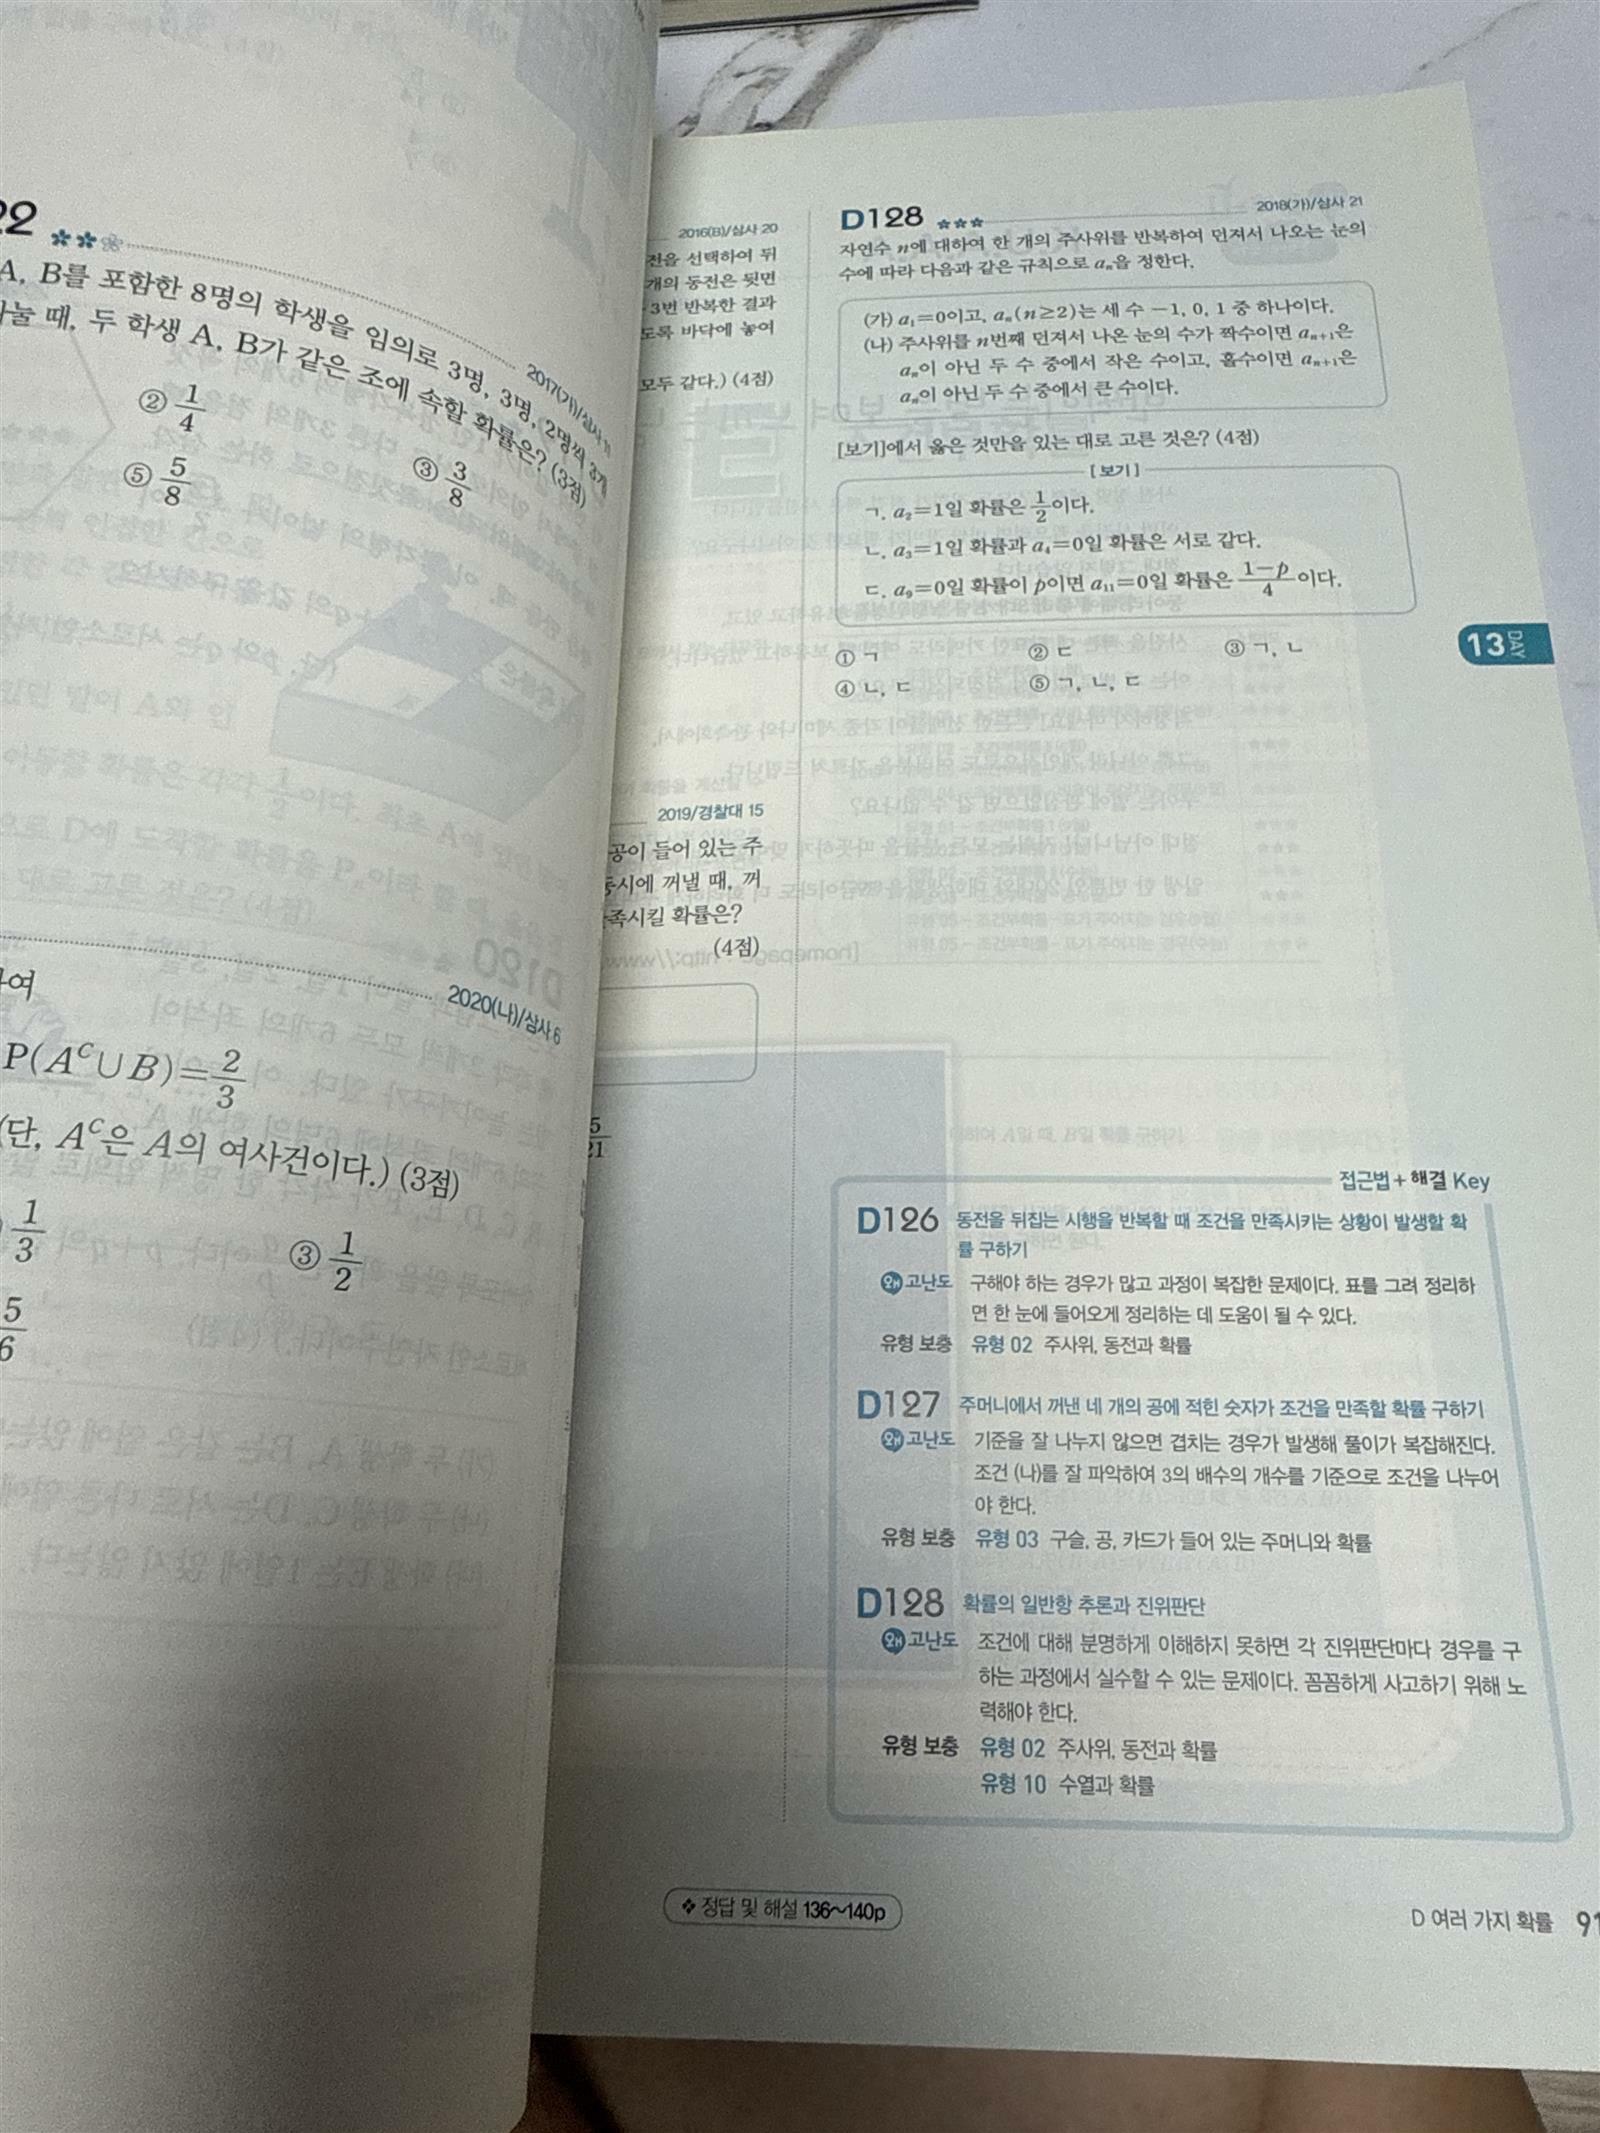 22
2017(가)/삼사 11
A, B를 포함한 8명의 학생을 임의로 3명, 3명, 2명씩 3개
나눌 때, 두 학생 A, B가 같은 조에 속할 확률은? (3점)
② 1/4
③ 3/8
⑤ 5/8
2020(나)/삼사 6
하여
P(A^C∪B)=2/3
(단, A^C은 A의 여사건이다.) (3점)
1/3
③ 1/2
5/6
2016(B)/삼사 20
전을 선택하여 뒤
개의 동전은 뒷면
3번 반복한 결과
도록 바닥에 놓여
모두 같다.) (4점)
2019/경찰대 15
공이 들어 있는 주
동시에 꺼낼 때, 꺼
족시킬 확률은?
(4점)
5/21
D128 ★★★ 2018(가)/삼사 21
자연수 n에 대하여 한 개의 주사위를 반복하여 던져서 나오는 눈의
수에 따라 다음과 같은 규칙으로 aₙ을 정한다.
(가) a₁=0이고, aₙ(n≥2)는 세 수 −1, 0, 1 중 하나이다.
(나) 주사위를 n번째 던져서 나온 눈의 수가 짝수이면 aₙ₊₁은
aₙ이 아닌 두 수 중에서 작은 수이고, 홀수이면 aₙ₊₁은
aₙ이 아닌 두 수 중에서 큰 수이다.
[보기]에서 옳은 것만을 있는 대로 고른 것은? (4점)
[보기]
ㄱ. a₂=1일 확률은 1/2이다.
ㄴ. a₃=1일 확률과 a₄=0일 확률은 서로 같다.
ㄷ. a₉=0일 확률이 p이면 a₁₁=0일 확률은 (1−p)/4이다.
① ㄱ ② ㄷ ③ ㄱ, ㄴ
④ ㄴ, ㄷ ⑤ ㄱ, ㄴ, ㄷ
13 DAY
접근법+해결 Key
D126 동전을 뒤집는 시행을 반복할 때 조건을 만족시키는 상황이 발생할 확
률 구하기
왜 고난도 구해야 하는 경우가 많고 과정이 복잡한 문제이다. 표를 그려 정리하
면 한 눈에 들어오게 정리하는 데 도움이 될 수 있다.
유형 보충 유형 02 주사위, 동전과 확률
D127 주머니에서 꺼낸 네 개의 공에 적힌 숫자가 조건을 만족할 확률 구하기
왜 고난도 기준을 잘 나누지 않으면 겹치는 경우가 발생해 풀이가 복잡해진다.
조건 (나)를 잘 파악하여 3의 배수의 개수를 기준으로 조건을 나누어
야 한다.
유형 보충 유형 03 구슬, 공, 카드가 들어 있는 주머니와 확률
D128 확률의 일반항 추론과 진위판단
왜 고난도 조건에 대해 분명하게 이해하지 못하면 각 진위판단마다 경우를 구
하는 과정에서 실수할 수 있는 문제이다. 꼼꼼하게 사고하기 위해 노
력해야 한다.
유형 보충 유형 02 주사위, 동전과 확률
유형 10 수열과 확률
❖ 정답 및 해설 136~140p
D 여러 가지 확률 91